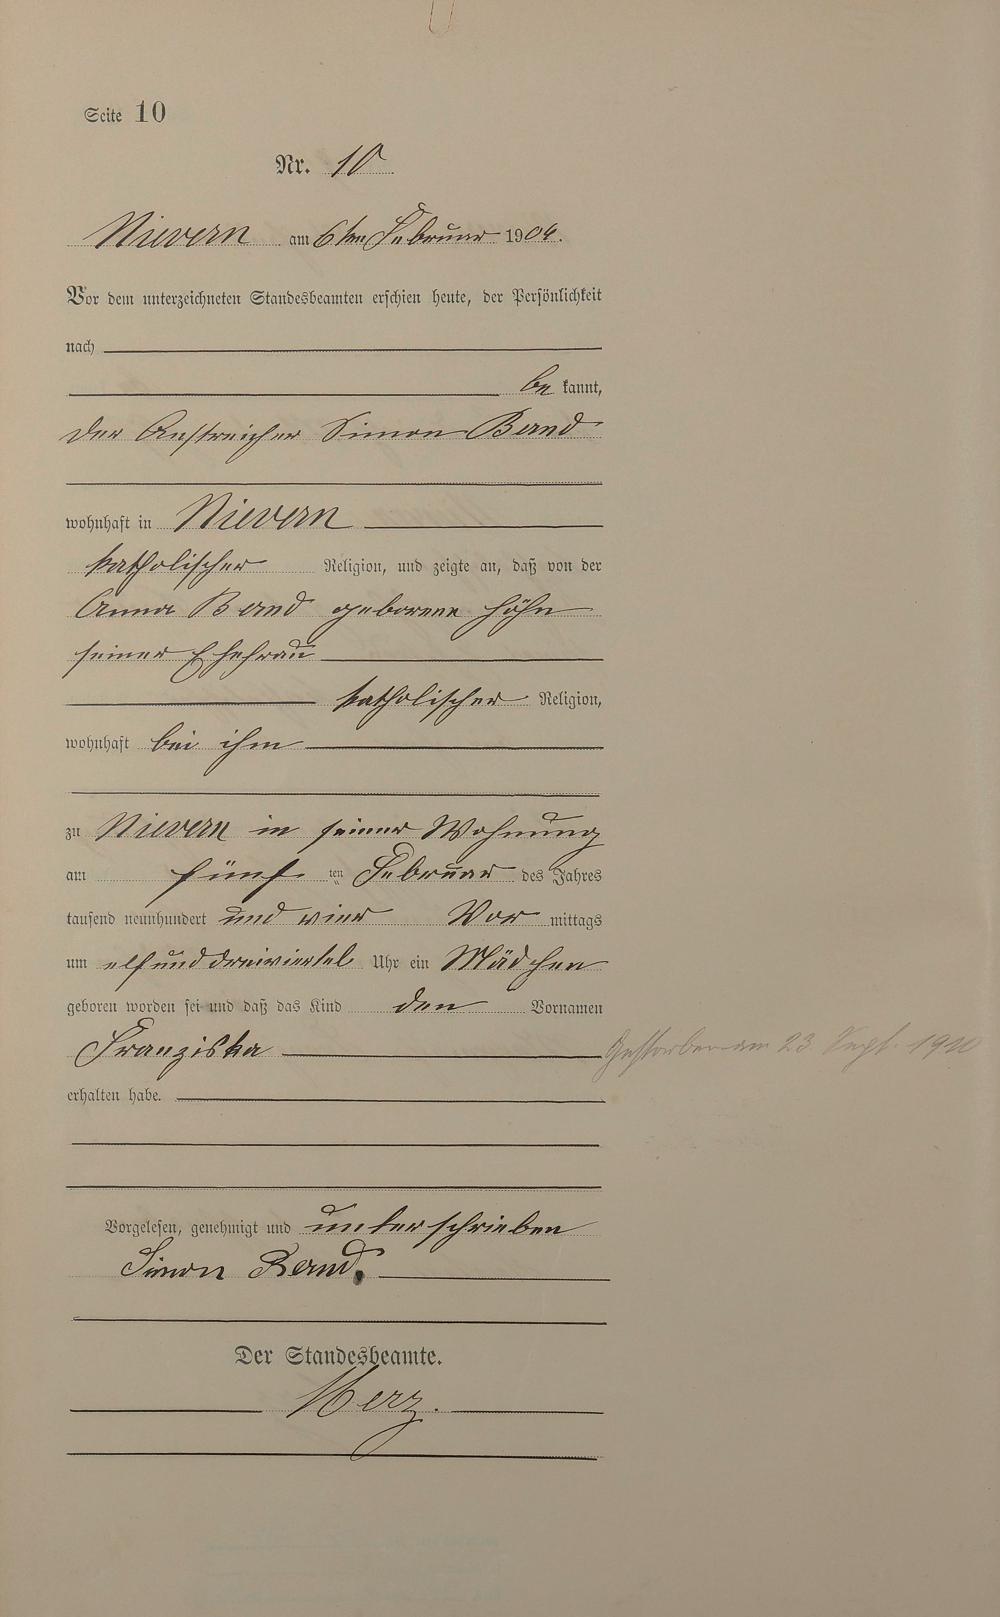 Seite 10
Nr. 10
Nievern am 6ten Februar 1904.
Vor dem unterzeichneten Standesbeamten erschien heute, der Persönlichkeit
nach
be kannt,
der Anstreicher Simon Bernd
wohnhaft in Nievern
katholischer Religion, und zeigte an, daß von der
Anna Bernd geborene Höhn
seiner Ehefrau
katholischer Religion,
wohnhaft bei ihm
zu Nievern in seiner Wohnung
am fünf ten Februar des Jahres
tausend neunhundert und vier Vor mittags
um elfunddreiviertel Uhr ein Mädchen
geboren worden sei und daß das Kind den Vornamen
Franziska Gestorben am 23 Sept. 1910
erhalten habe.
Vorgelesen, genehmigt und unterschrieben
Simon Bernd.
Der Standesbeamte.
Merz.